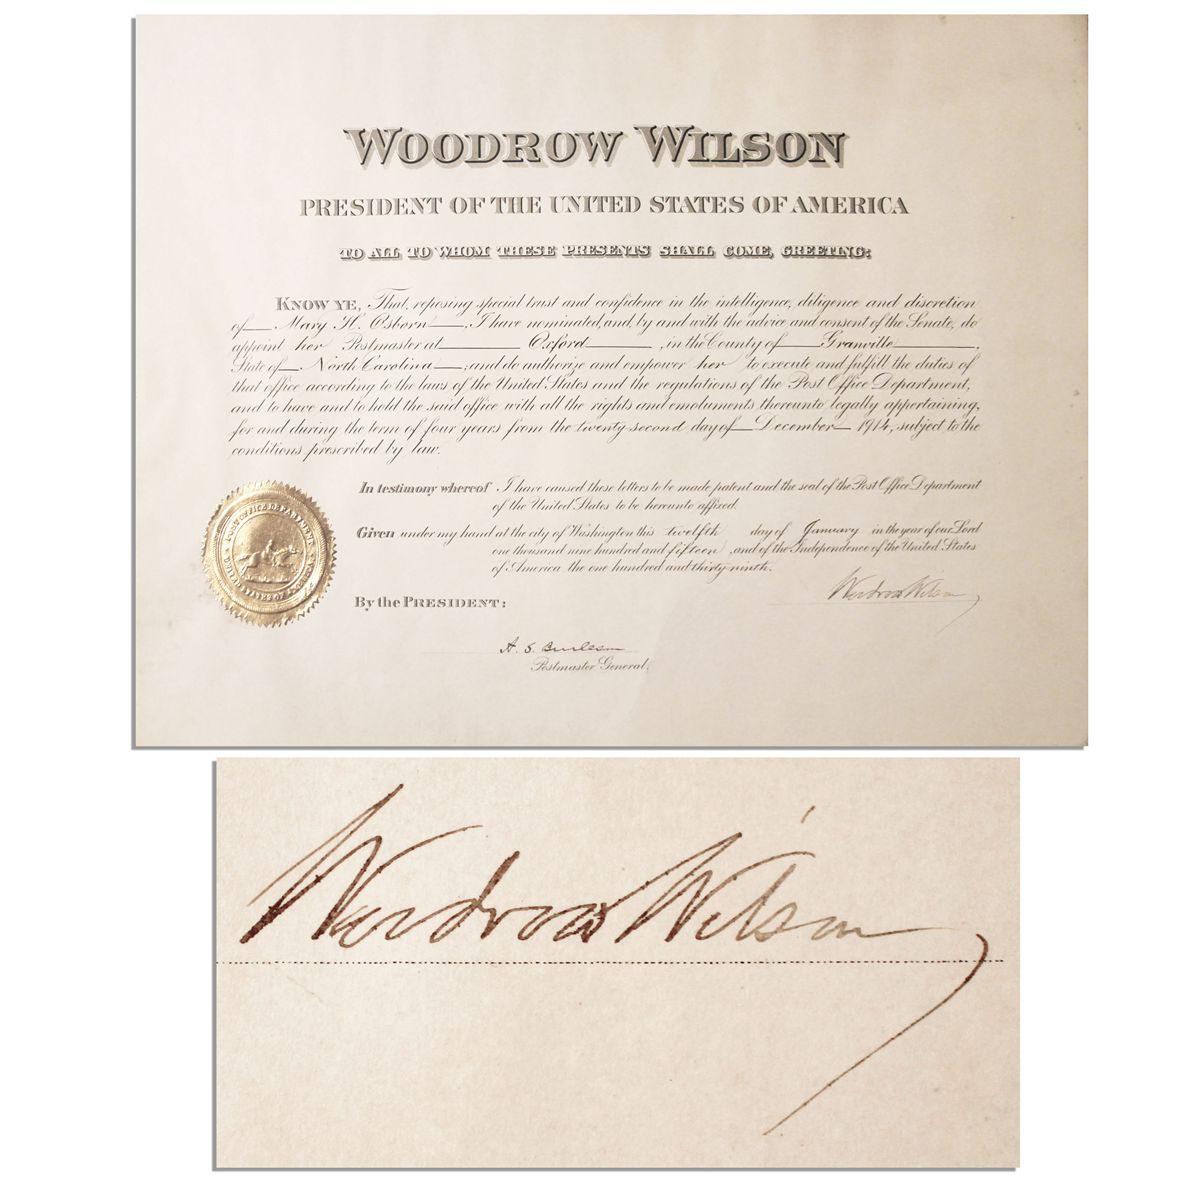 WOODROW WILSON
PRESIDENT OF THE UNITED STATES OF AMERICA
TO ALL TO WHOM THESE PRESENTS SHALL COME, GREETING:
KNOW YE, That, reposing special trust and confidence in the intelligence, diligence and discretion
of Mary H. Osborn, I have nominated, and, by and with the advice and consent of the Senate, do
appoint her Postmaster at Oxford, in the County of Granville,
State of North Carolina; and do authorize and empower her to execute and fulfill the duties of
that office according to the laws of the United States and the regulations of the Post Office Department,
and to have and to hold the said office with all the rights and emoluments thereunto legally appertaining,
for and during the term of four years from the twenty-second day of December 1914, subject to the
conditions prescribed by law.
In testimony whereof I have caused these letters to be made patent and the seal of the Post Office Department
of the United States to be hereunto affixed.
Given under my hand at the city of Washington this twelfth day of January in the year of our Lord
one thousand nine hundred and fifteen, and of the Independence of the United States
of America the one hundred and thirty-ninth.
Woodrow Wilson
By the PRESIDENT:
A. S. Burleson
Postmaster General.
POST OFFICE DEPARTMENT
UNITED STATES OF AMERICA
Woodrow Wilson